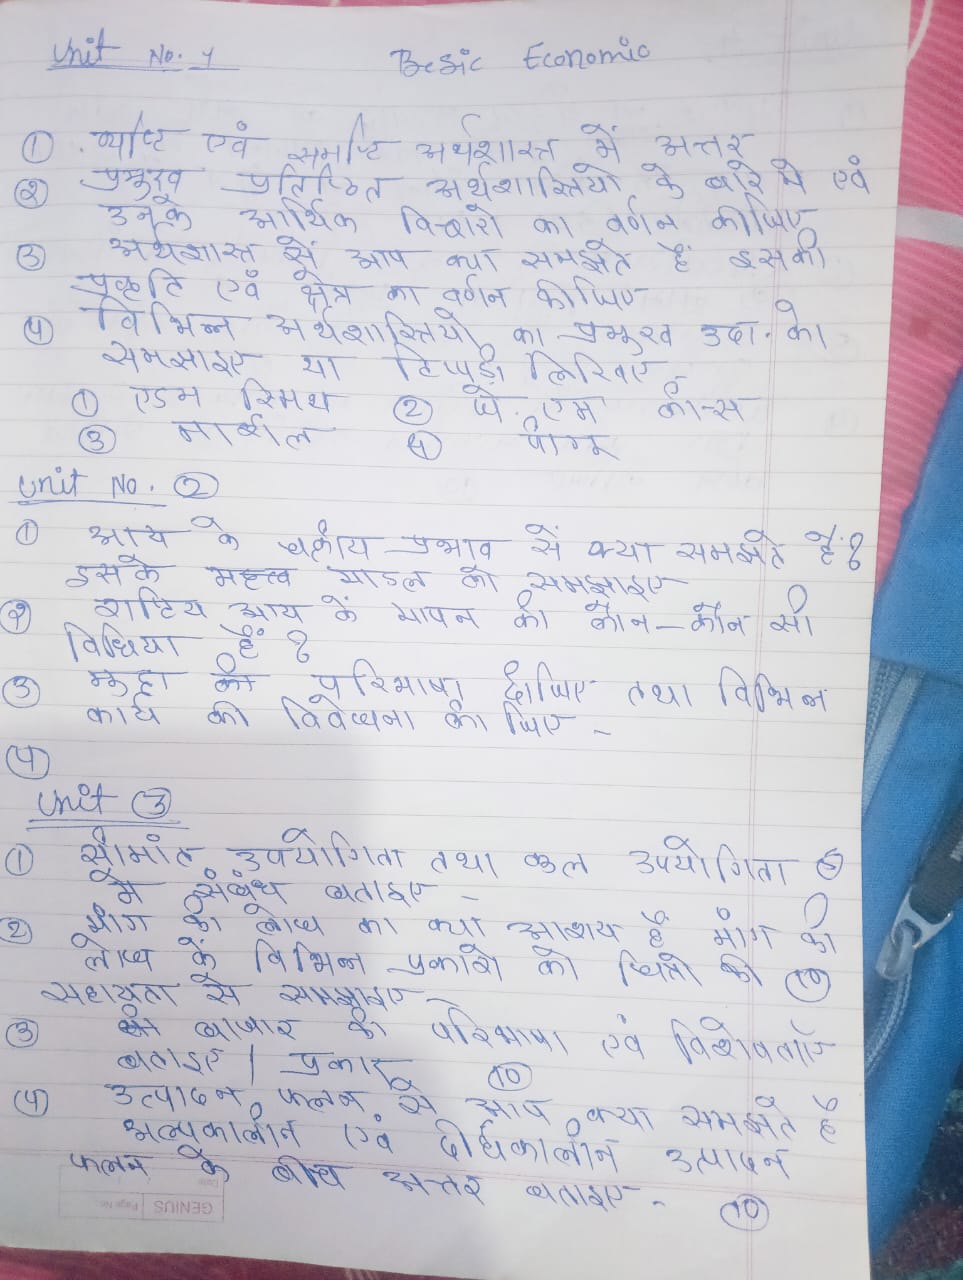 Unit No. 1 Besic Economic
① व्यष्टि एवं समष्टि अर्थशास्त्र में अन्तर
② प्रमुख प्रतिष्ठित अर्थशास्त्रियों के बारे मे एवं
उनके आर्थिक विचारो का वर्णन कीजिए
③ अर्थशास्त्र से आप क्या समझते हैं इसकी
प्रकृति एवं क्षेत्र का वर्णन कीजिए
④ विभिन्न अर्थशास्त्रियों का प्रमुख उदा. को
समझाइए या टिप्पड़ी लिखिए
① एडम स्मिथ ② जे. एम कीन्स
③ मार्शल ④ पीगू
Unit No. ②
① आय के चक्रीय प्रभाव से क्या समझते हैं?
इसके महत्व माडल को समझाइए
② राष्टिय आय के मापन की कौन-कौन सी
विधिया हैं?
③ मुद्रा की परिभाषा दीजिए तथा विभिन्न
कार्य की विवेचना कीजिए -
④
Unit ③
① सीमांत उपयोगिता तथा कुल उपयोगिता
में संबंध बताइए -
② माँग की लोच का क्या आशय है माँग की
लोच के विभिन्न प्रकारो को चित्रो की ⑩
सहायता से समझाइए -
③ बाजार की परिभाषा एवं विशेषताएँ
बताइए / प्रकार ⑩
④ उत्पादन फलन से आप क्या समझते है
अल्पकालीन एवं दीर्घकालीन उत्पादन
फलन के बीच अन्तर बताइए - ⑩
GENIUS
Date
Page No.